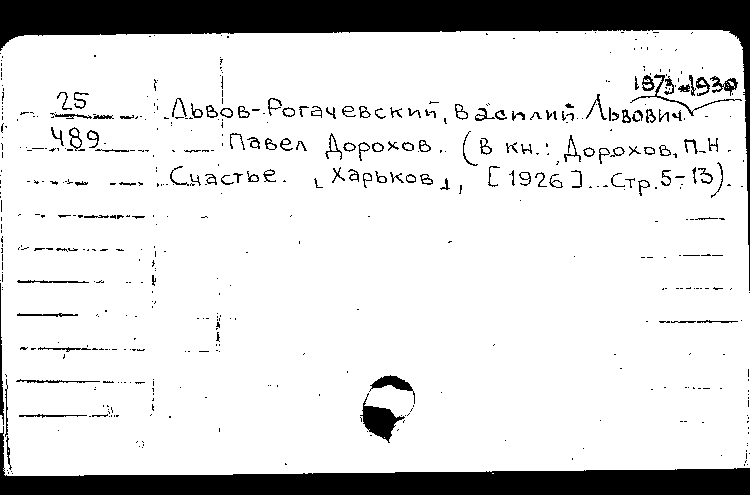 1873-1930
25 Львов-Рогачевский, Василий Львович.
489 Павел Дорохов. (В кн.: Дорохов, П.Н.
Счастье. Харьков, [1926]. Стр. 5-13).